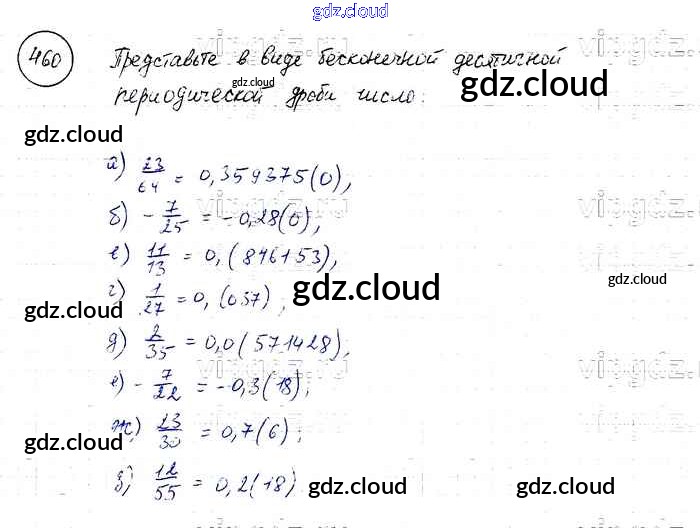 gdz.cloud
460 Представьте в виде бесконечной десятичной
gdz.cloud gdz.cloud
периодической дроби число:
gdz.cloud
а) 23/64 = 0,359375(0),
б) - 7/25 = - 0,28(0),
gdz.cloud
в) 11/13 = 0,(846153),
gdz.cloud
gdz.cloud
г) 1/27 = 0,(037),
gdz.cloud
д) 2/35 = 0,0(571428),
е) - 7/22 = -0,3(18);
ж) 23/30 = 0,7(6);
gdz.cloud
з) 12/55 = 0,2(18)
gdz.cloud gdz.cloud